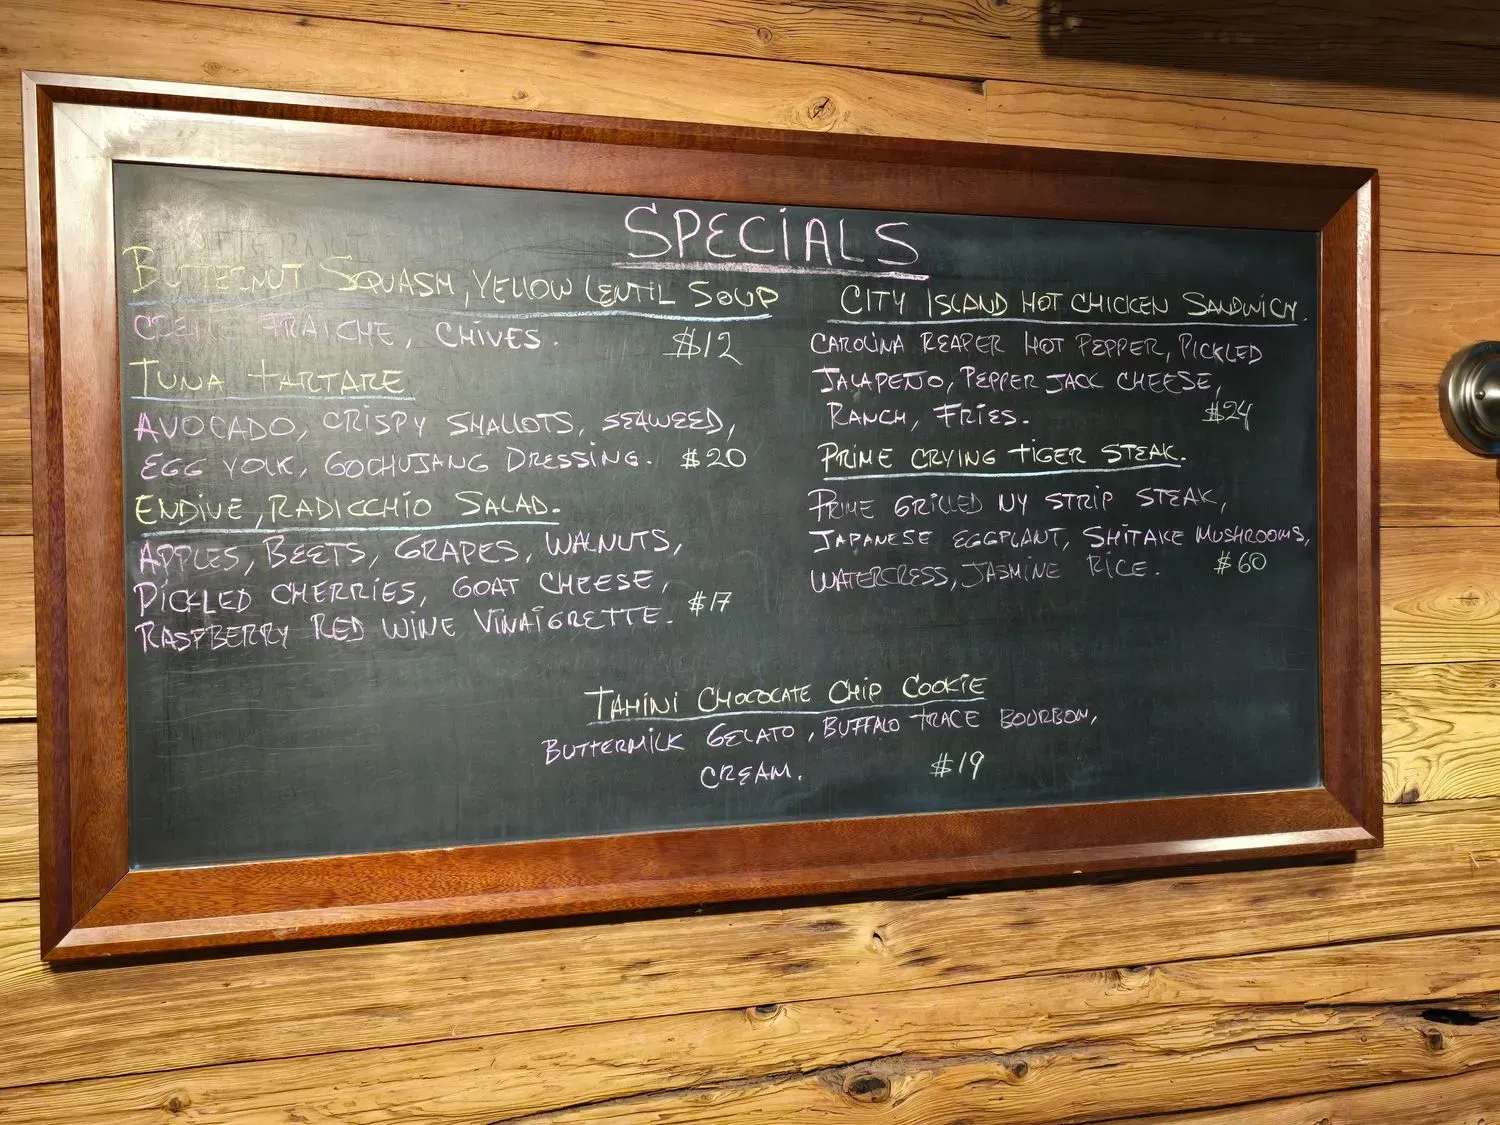 SPECIALS
BUTTERNUT SQUASH, YELLOW LENTIL SOUP
CREME FRAICHE, CHIVES. $12
TUNA TARTARE
AVOCADO, CRISPY SHALLOTS, SEAWEED,
EGG YOLK, GOCHUJANG DRESSING. $20
ENDIVE, RADICCHIO SALAD.
APPLES, BEETS, GRAPES, WALNUTS,
PICKLED CHERRIES, GOAT CHEESE, $17
RASPBERRY RED WINE VINAIGRETTE.
CITY ISLAND HOT CHICKEN SANDWICH.
CAROLINA REAPER HOT PEPPER, PICKLED
JALAPENO, PEPPER JACK CHEESE,
RANCH, FRIES. $24
PRIME CRYING TIGER STEAK.
PRIME GRILLED NY STRIP STEAK,
JAPANESE EGGPLANT, SHITAKE MUSHROOMS,
WATERCRESS, JASMINE RICE. $60
TAHINI CHOCOLATE CHIP COOKIE
BUTTERMILK GELATO, BUFFALO TRACE BOURBON,
CREAM. $19